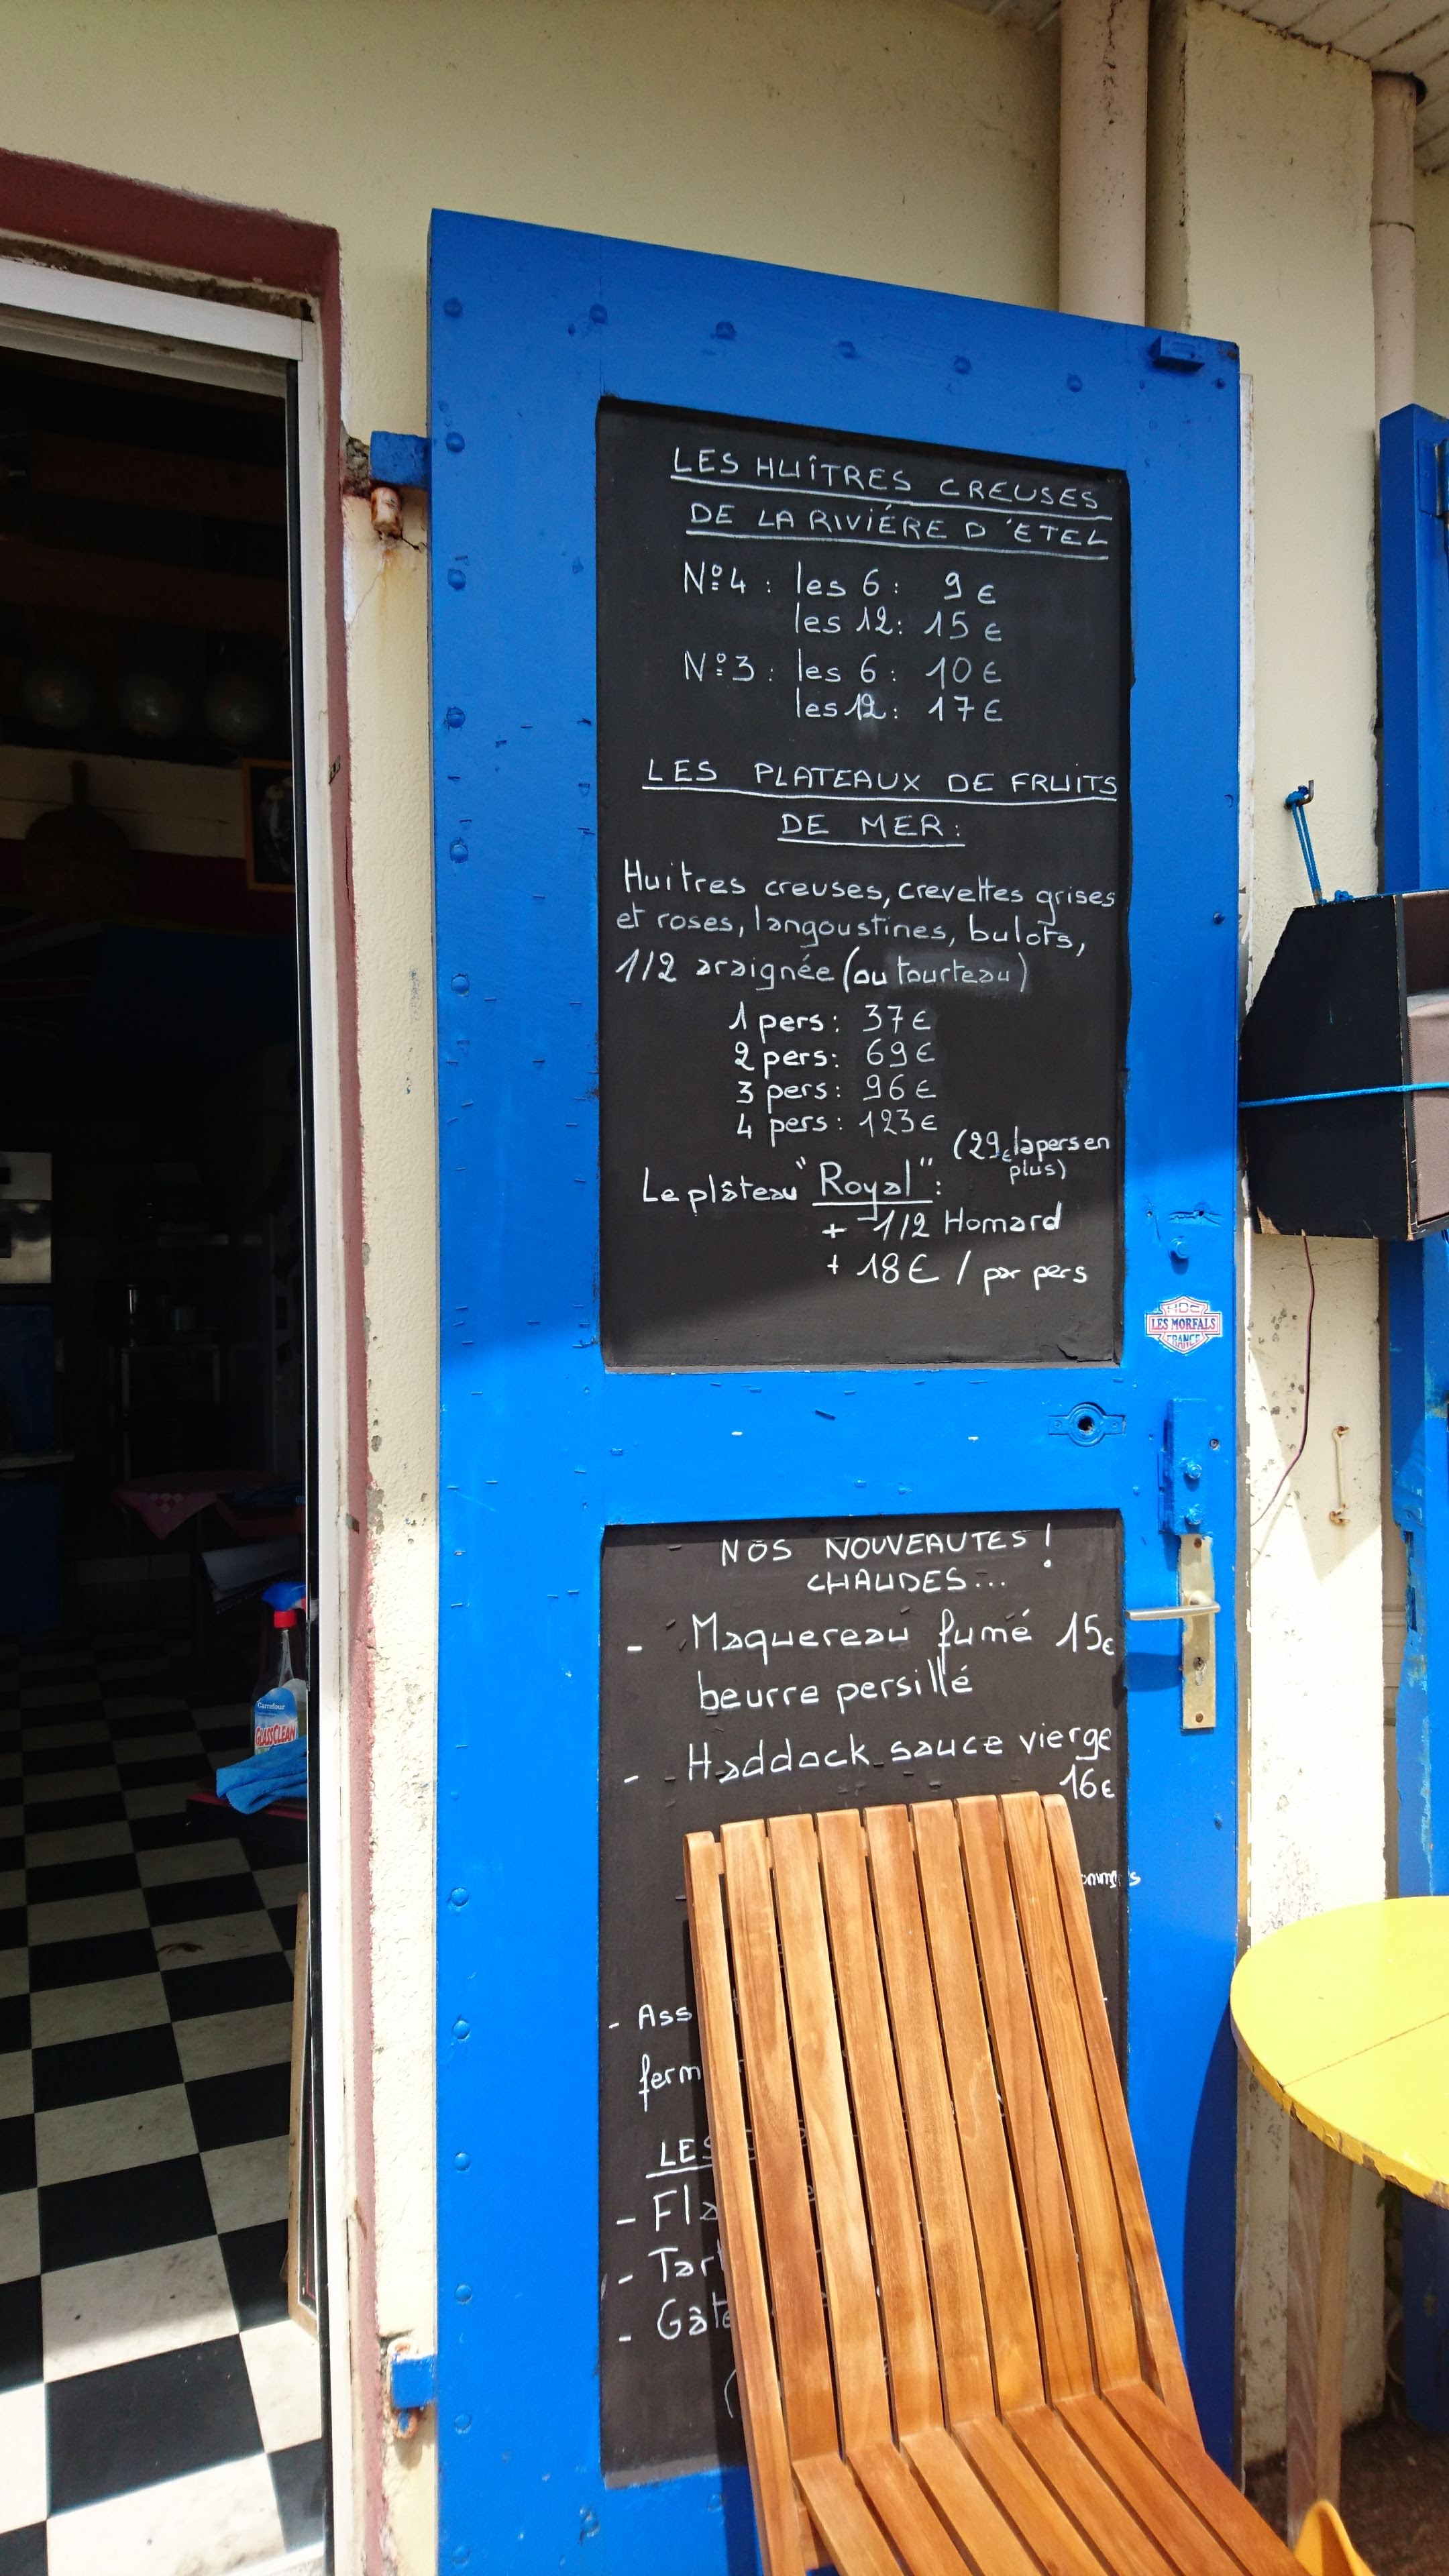 LES HUÎTRES CREUSES
DE LA RIVIÉRE D'ETEL
Nº4 : les 6 : 9 €
les 12 : 15 €
Nº3 : les 6 : 10 €
les 12 : 17 €
LES PLATEAUX DE FRUITS
DE MER :
Huitres creuses, crevettes grises
et roses, langoustines, bulots,
1/2 araignée (ou tourteau)
1 pers : 37 €
2 pers : 69 €
3 pers : 96 €
4 pers : 123 €
(29€ la pers en
plus)
Le plâteau "Royal" :
+ 1/2 Homard
+ 18 € / par pers
HDC
LES MORFALS
FRANCE
NOS NOUVEAUTES !
CHAUDES...
- Maquereau fumé 15€
beurre persillé
- Haddock sauce vierge
16€
- Ass
ferm
LES
- Fla
- Tart
- Gâte
Carrefour
GLASS CLEAN